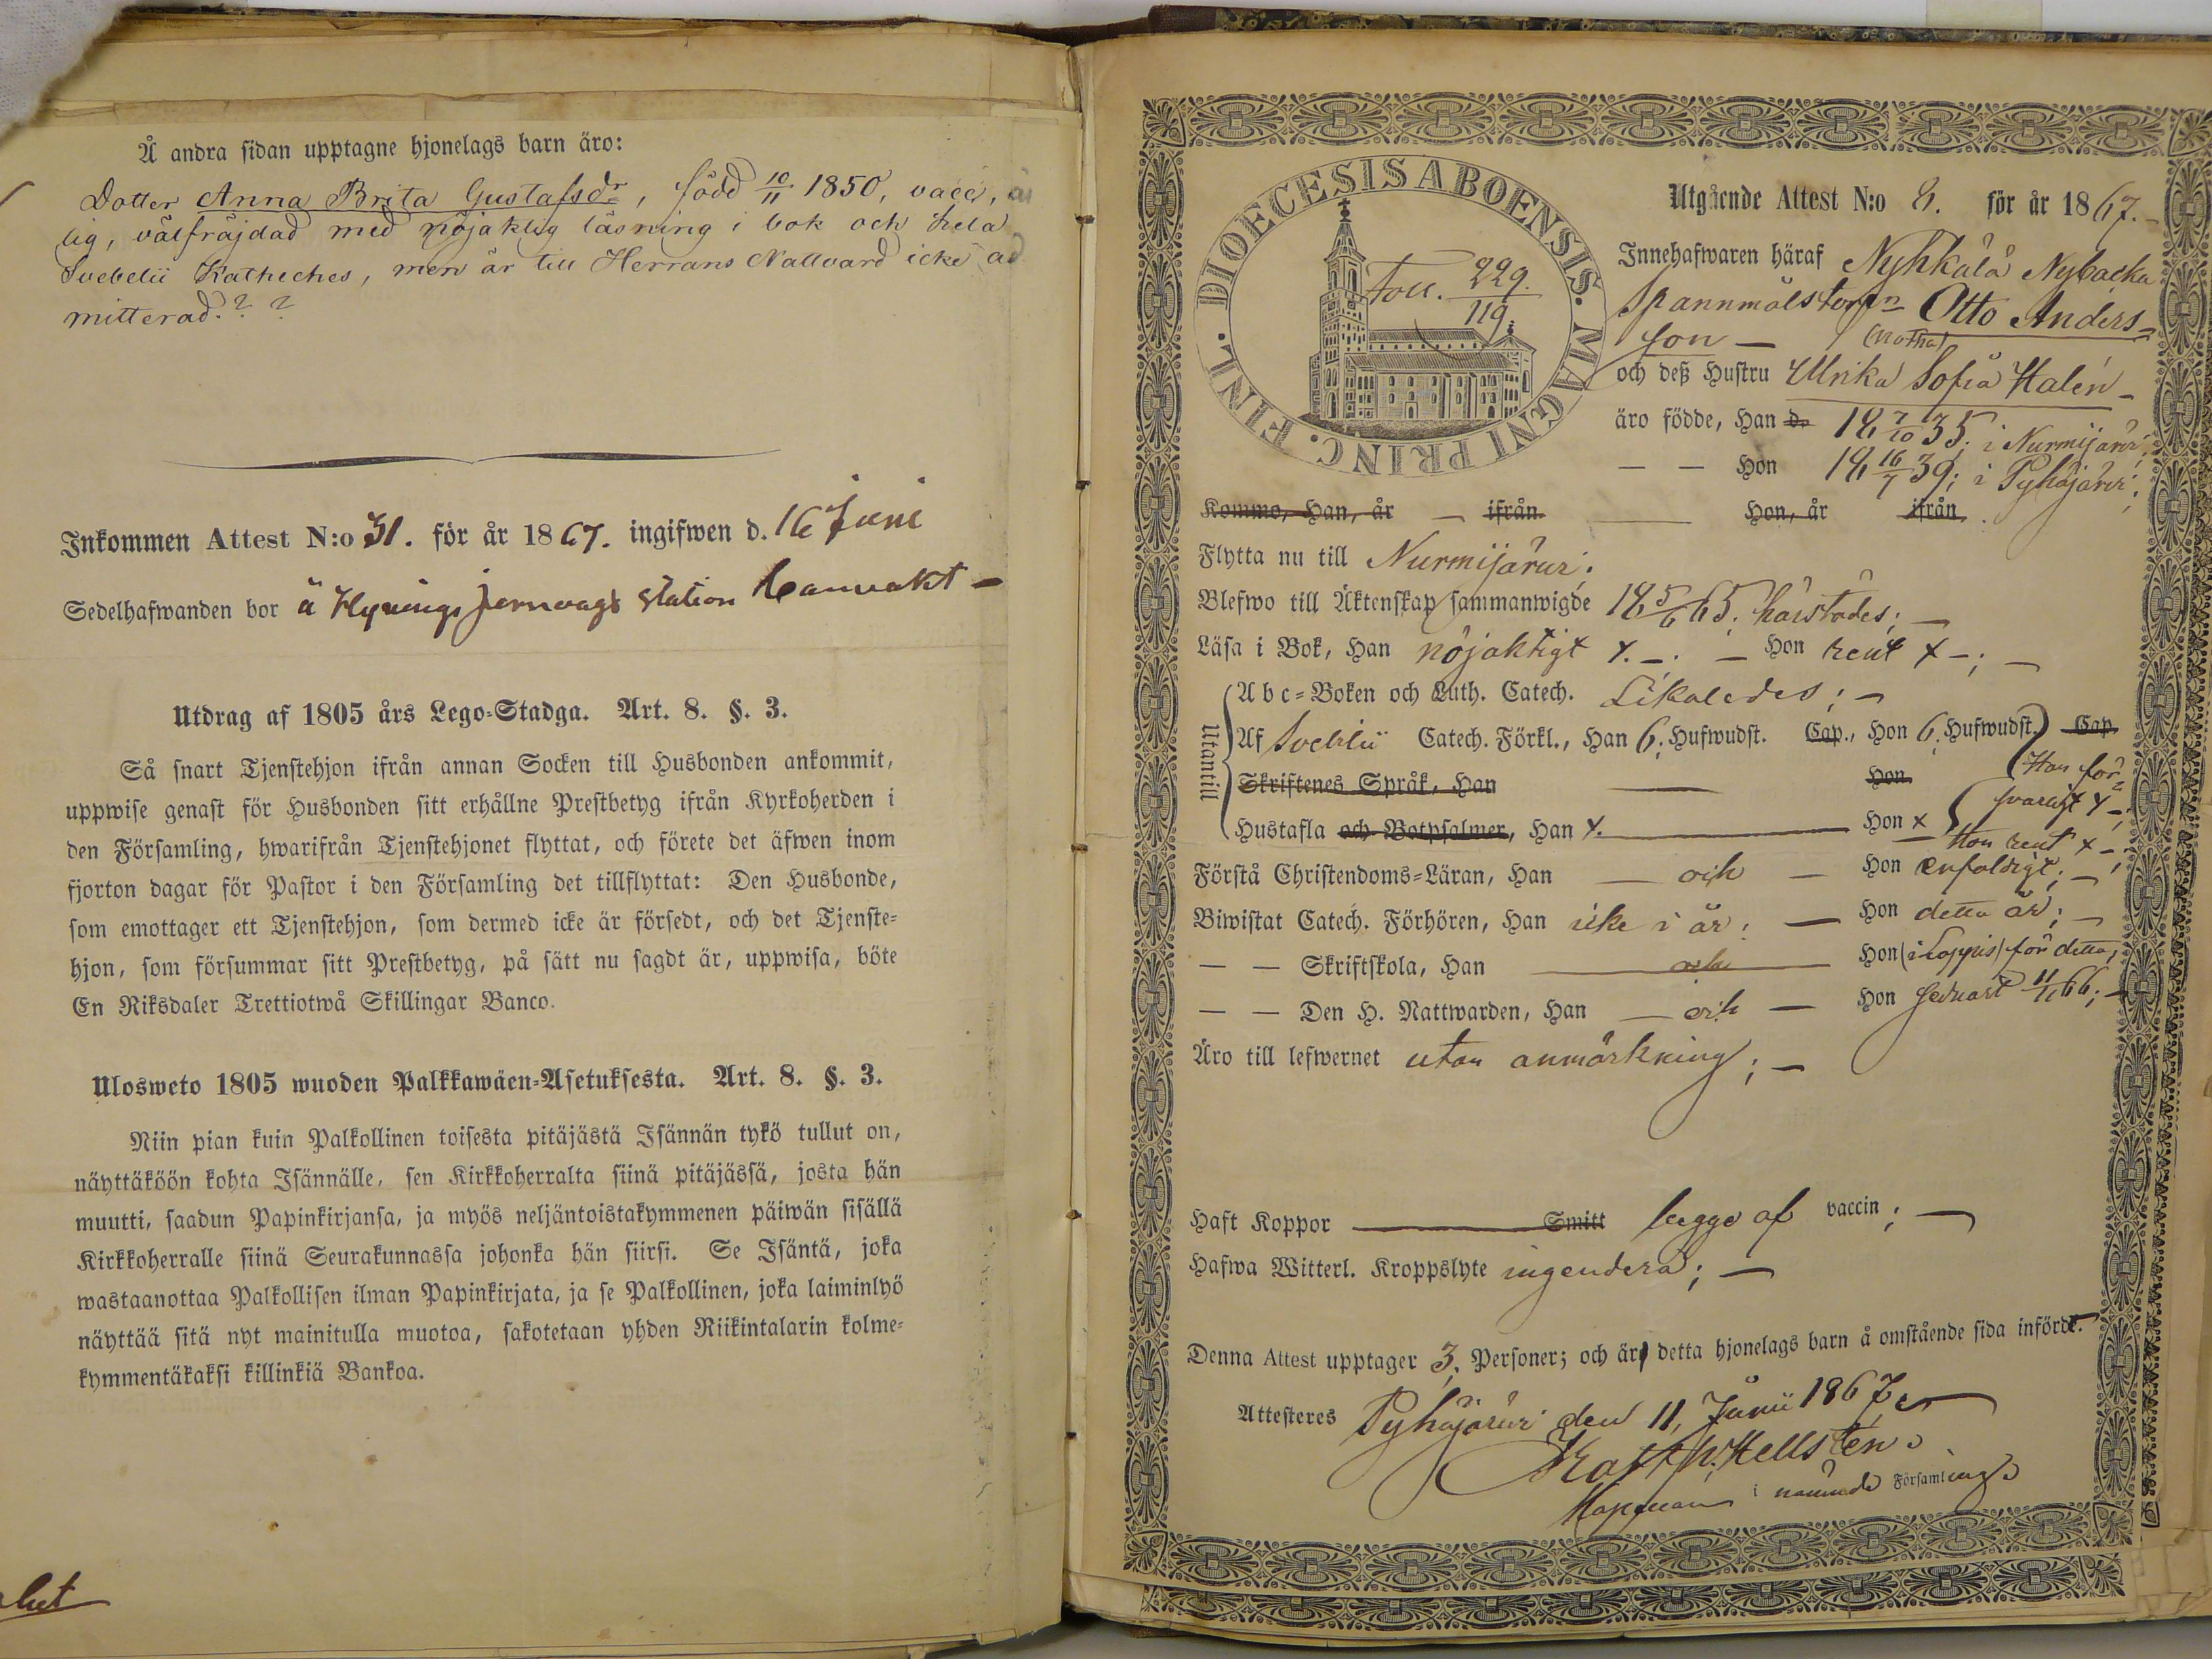 Å andra sidan upptagne hjonelags barn äro:
Dotter Anna Brita Gustafsdr, född 10/11 1850, vacc,
lig, välfräjdad med nöjaktig läsning i bok och hela
Svebelii Katheches, men är till Herrans Nattvard icke ad
mitterad. ? ?
Inkommen Attest N:o 31. för år 1867. ingifwen d. 16 Juni
Sedelhafwanden bor å Hyvinge jernvägs station
Utdrag af 1805 års Lego-Stadga. Art. 8. §. 3.
Så snart Tjenstehjon ifrån annan Socken till Husbonden ankommit,
uppwise genast för Husbonden sitt erhållne Prestbetyg ifrån Kyrkoherden i
den Församling, hwarifrån Tjenstehjonet flyttat, och förete det äfwen inom
fjorton dagar för Pastor i den Församling det tillflyttat: Den Husbonde,
som emottager ett Tjenstehjon, som dermed icke är försedt, och det Tjenste-
hjon, som försummar sitt Prestbetyg, på sätt nu sagdt är, uppwisa, böte
En Riksdaler Trettiotwå Skillingar Banco.
Ulosweto 1805 wuoden Palkkawäen-Asetuksesta. Art. 8. §. 3.
Niin pian kuin Palkollinen toisesta pitäjästä Isännän tykö tullut on,
näyttäköön kohta Isännälle, sen Kirkkoherralta siinä pitäjässä, josta hän
muutti, saadun Papinkirjansa, ja myös neljäntoistakymmenen päiwän sisällä
Kirkkoherralle siinä Seurakunnassa johonka hän siirsi. Se Isäntä, joka
wastaanottaa Palkollisen ilman Papinkirjata, ja se Palkollinen, joka laiminlyö
näyttää sitä nyt mainitulla muotoa, sakotetaan yhden Riikintalarin kolme-
kymmentäkaksi killinkiä Bankoa.
DIOECESIS ABOENSIS. MAGNI PRINC. FINL.
Foll. 229.
119.
Utgående Attest N:o 8. för år 1867.
Innehafwaren häraf Nyhkälä Nybacka
Spannmålstorpn Otto Anders-
son — (notha)
och deß Hustru Ulrika Sofia Halén —
äro födde, Han d. 18 7/10 35. i Nurmijärvi;
— — Hon 18 16/7 39; i Pyhäjärvi;
Kommo, Han, år — ifrån — Hon, år ifrån
Flytta nu till Nurmijärvi.
Blefwo till Äktenskap sammanwigde 18 5/6 65. härstädes; —
Läsa i Bok, Han nöjaktigt x. —. — Hon rent x —; —
Utantill
Abc-Boken och Luth. Catech. Likaledes; —
Af Svebilii Catech. Förkl., Han 6. Hufwudst. Cap., Hon 6. Hufwudst. Cap.
Skriftenes Språk, Han — Hon
Han för-
svarligt x —;
Hustafla och Botpsalmer, Han x. — Hon x
Hon rent x —;
Förstå Christendoms-Läran, Han — och — Hon enfaldigt; —
Biwistat Catech. Förhören, Han icke i år; — Hon detta år; —
— — Skriftskola, Han — och — Hon (i Loppis) för detta;
— — Den H. Nattwarden, Han — och — Hon sednast 11/11 66; —
Äro till lefwernet utan anmärkning; —
Haft Koppor — Smitt begge af vaccin; —
Hafwa Witterl. Kroppslyte ingendera; —
Denna Attest upptager 3. Personer; och är detta hjonelags barn å omstående sida infördt.
Attesteres Pyhäjärvi den 11, Junii 1867
Hellstén.
Kapellan i nämnde Församling